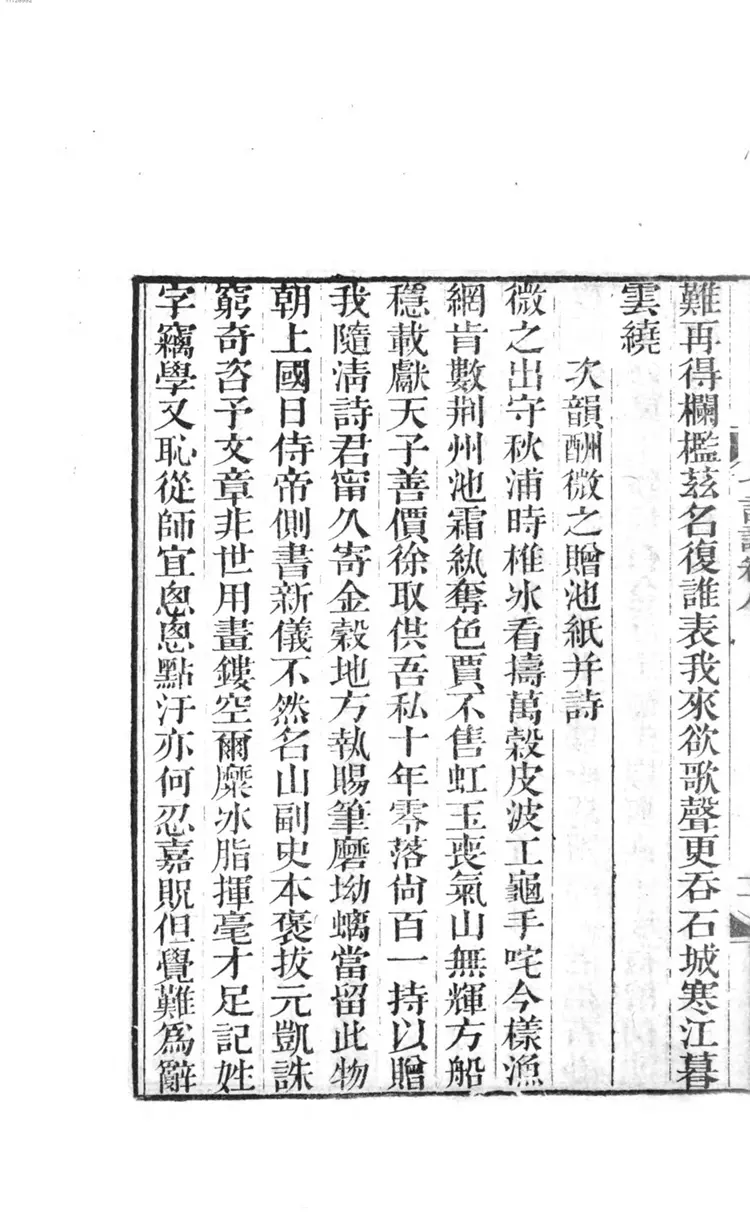 難再得欄檻茲名復誰表我來欲歌聲更吞石城寒江暮
雲繞
次韻酬微之贈池紙并詩
微之出守秋浦時椎冰看擣萬穀皮波工龜手咤今樣漁
網肯數荆州池霜紈奪色賈不售虹玉喪氣山無輝方船
穩載獻天子善價徐取供吾私十年零落尙百一持以贈
我隨淸詩君甯久寄金穀地方執賜筆磨坳螭當留此物
朝上國日侍帝側書新儀不然名山副史本褒拔元凱誅
窮奇咨予文章非世用畫鏤空爾糜冰脂揮毫才足記姓
字竊學又恥從師宜悤悤點汙亦何忍嘉貺但覺難爲辭